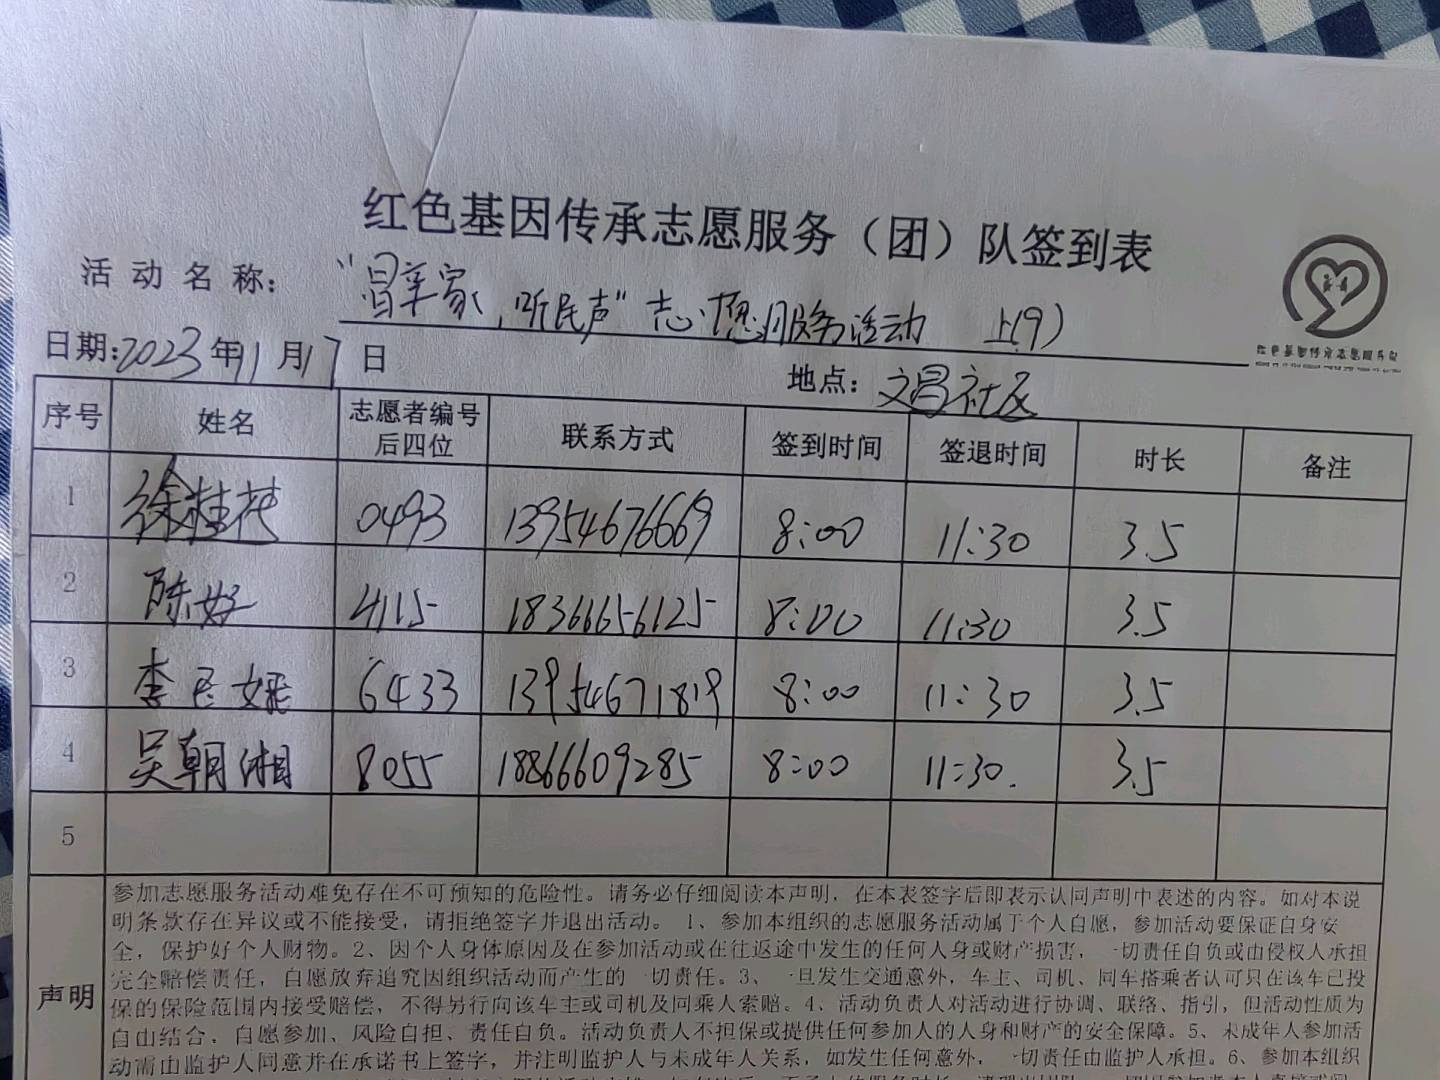 红色基因传承志愿服务（团）队签到表
活动名称： "冒萃家，听民声"志愿服务活动 上(9)
日期：2023年11月17日 地点：文昌社区
序号 姓名 志愿者编号后四位 联系方式 签到时间 签退时间 时长 备注
1 徐桂花 0493 13954676669 8:00 11:30 3.5
2 陈好 4115 18366656125 8:00 11:30 3.5
3 李 6433 13954671819 8:00 11:30 3.5
4 吴朝湘 8055 18866609285 8:00 11:30. 3.5
5
声明
参加志愿服务活动难免存在不可预知的危险性。请务必仔细阅读本声明，在本表签字后即表示认同声明中表述的内容。如对本说
明条款存在异议或不能接受，请拒绝签字并退出活动。 1、参加本组织的志愿服务活动属于个人自愿，参加活动要保证自身安
全，保护好个人财物。2、因个人身体原因及在参加活动或在往返途中发生的任何人身或财产损害，一切责任自负或由侵权人承担
完全赔偿责任，自愿放弃追究因组织活动而产生的一切责任。3、一旦发生交通意外，车主、司机、同车搭乘者认可只在该车已投
保的保险范围内接受赔偿，不得另行向该车主或司机及同乘人索赔。4、活动负责人对活动进行协调、联络、指引，但活动性质为
自由结合，自愿参加、风险自担、责任自负。活动负责人不担保或提供任何参加人的人身和财产的安全保障。5、未成年人参加活
动需由监护人同意并在承诺书上签字，并注明监护人与未成年人关系，如发生任何意外，一切责任由监护人承担。6、参加本组织